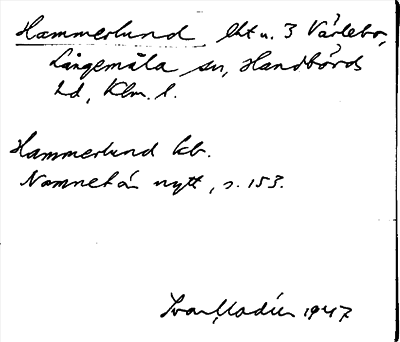 Hammerlund lht u. 3 Vårlebo,
Långemåla sn, Handbörds
hd, Klm. l.
Hammerlund kb.
Namnet är nytt, s. 153.
Ivar Modéer 1947